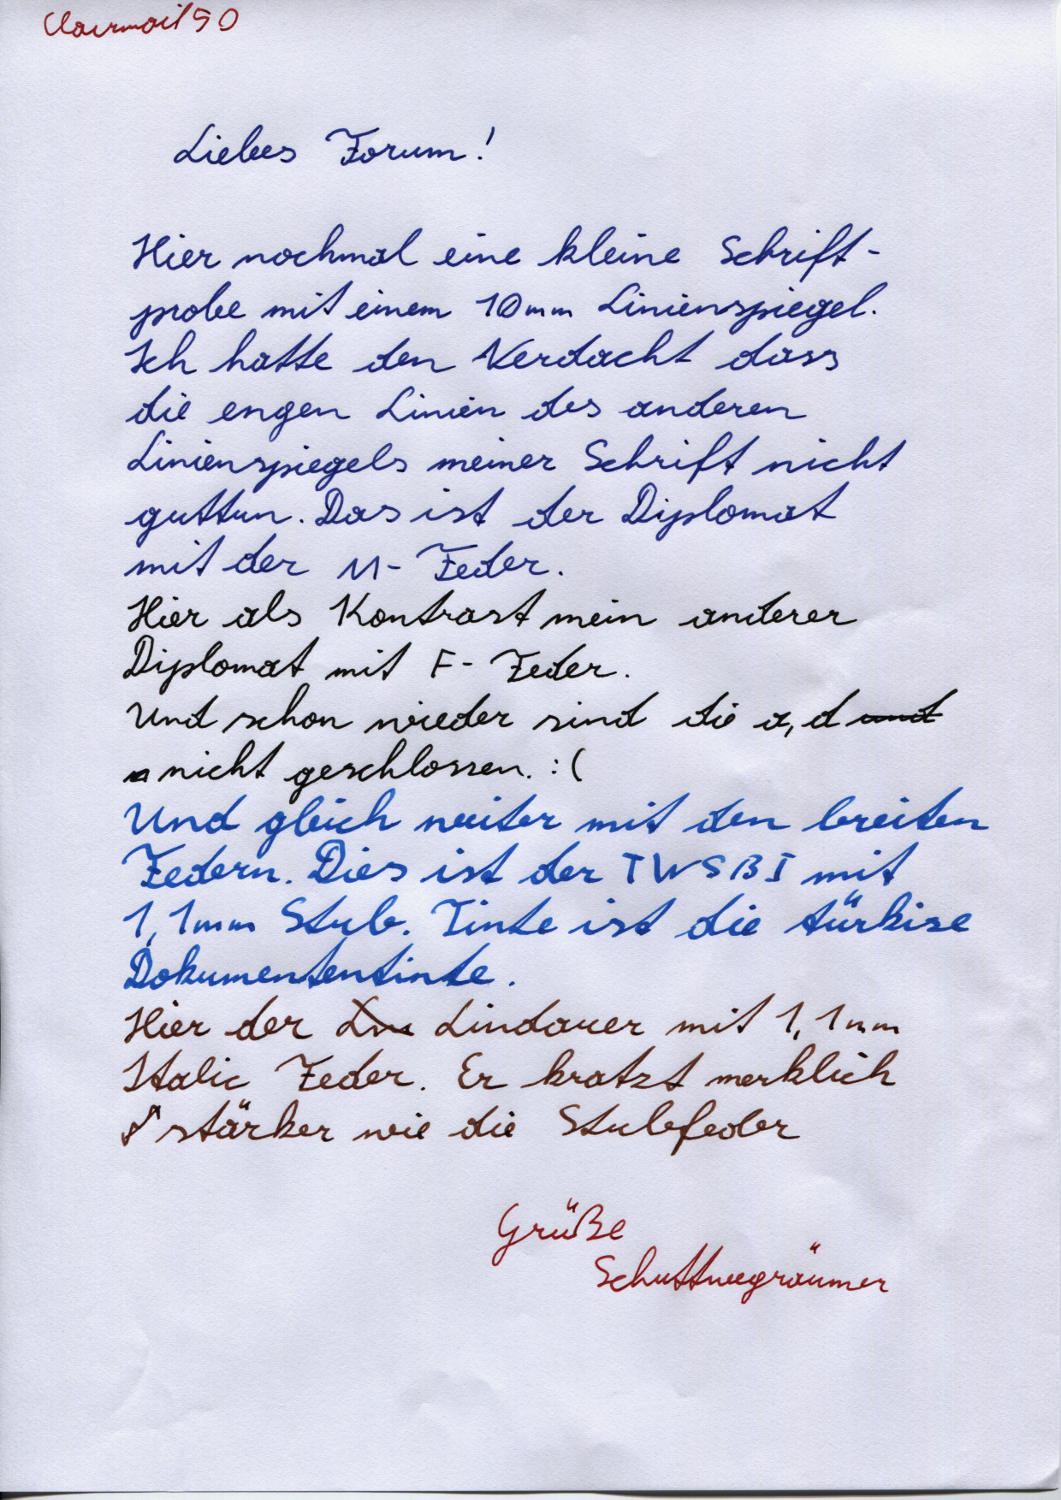 Clairmail 90
Liebes Forum!
Hier nochmal eine kleine Schrift-
probe mit einem 10mm Linienspiegel.
Ich hatte den Verdacht dass
die engen Linien des anderen
Linienspiegels meiner Schrift nicht
guttun. Das ist der Diplomat
mit der M-Feder.
Hier als Kontrast mein anderer
Diplomat mit F-Feder.
Und schon wieder sind die a, d und
nicht geschlossen. :(
Und gleich weiter mit den breiten
Federn. Dies ist der TWSBI mit
1,1mm Stub. Tinte ist die türkise
Dokumententinte.
Hier der Lin Lindauer mit 1,1mm
Italic Feder. Er kratzt merklich
stärker wie die Stubfeder
Grüße
Schuttwegräumer